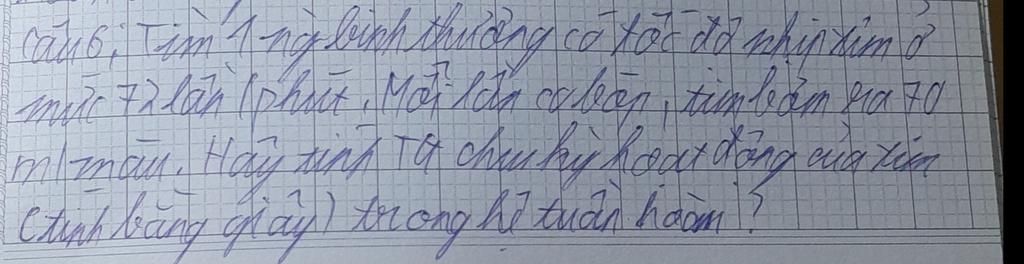 Câu 6: Tim 1 ng bình thường có tốc độ nhịp tim ở
mức 72 lần / phút. Mỗi lần co bóp, tim bơm ra 70
ml máu. Hãy tính TG chu kỳ hoạt động của tim
(tính bằng giây) trong hệ tuần hoàn?